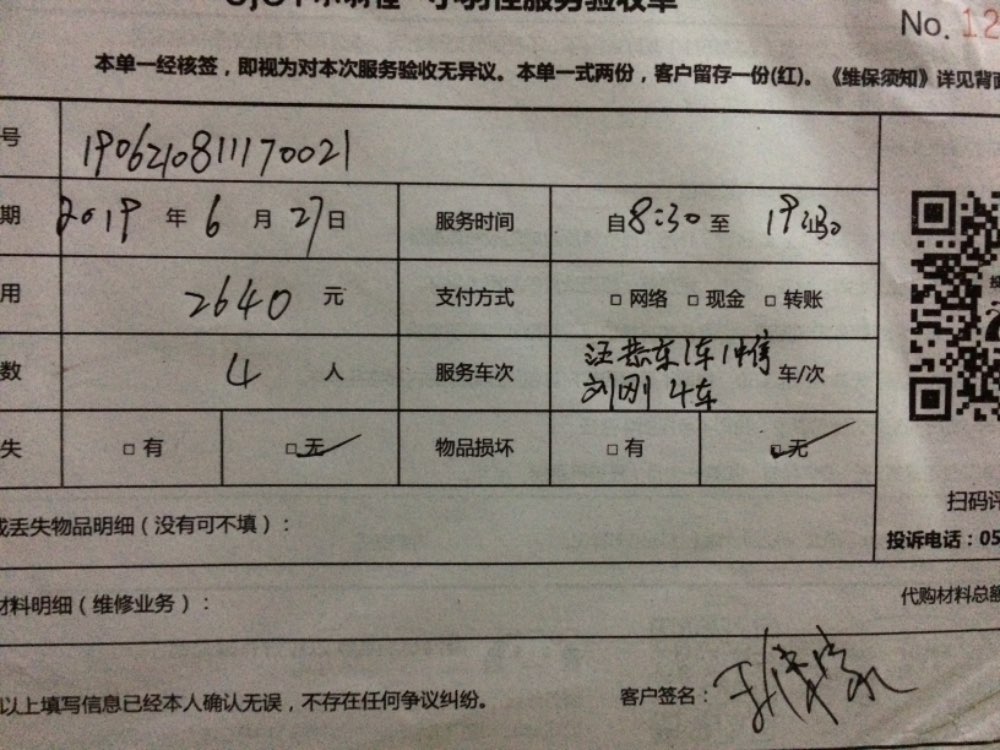 服务验收单
No. 12
本单一经核签，即视为对本次服务验收无异议。本单一式两份，客户留存一份(红)。《维保须知》详见背面
号 190621081117002​1
期 2019 年 6 月 27 日 服务时间 自 8:30 至 19:30
用 2640 元 支付方式 □ 网络 □ 现金 □ 转账
数 4 人 服务车次 汪恭东1车1中信 车/次
刘刚 4车
失 □ 有 □ 无 物品损坏 □ 有 □ 无
或丢失物品明细（没有可不填）：
扫码评
投诉电话：05
材料明细（维修业务）：
代购材料总额
以上填写信息已经本人确认无误，不存在任何争议纠纷。
客户签名：